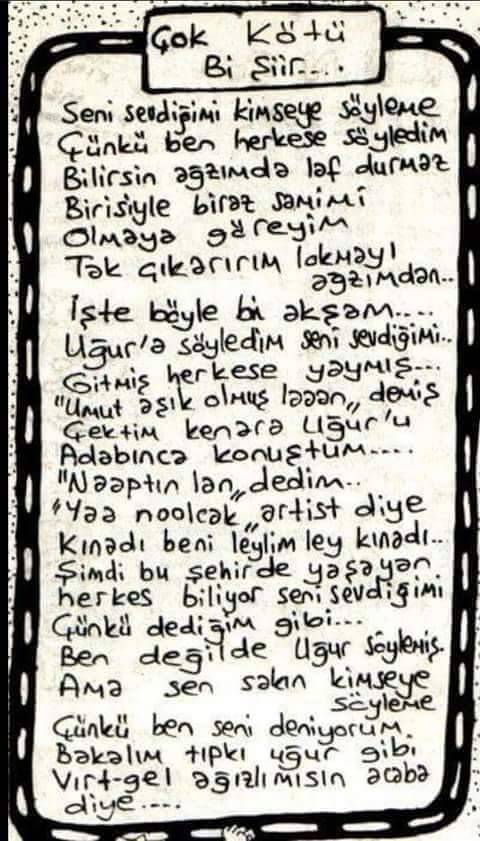 Çok Kötü
Bi Şiir....
Seni sevdiğimi kimseye söyleme
Çünkü ben herkese söyledim
Bilirsin ağzımda laf durmaz
Birisiyle biraz samimi
Olmaya göreyim
Tak çıkarırım lokmayı
ağzımdan..
İşte böyle bi akşam....
Uğur'a söyledim seni sevdiğimi..
Gitmiş herkese yaymış...
"Umut aşık olmuş laaan,, demiş
Çektim kenara Uğur'u
Adabınca konuştum....
"Naaptın lan,, dedim..
"Yaa noolcak,, artist diye
Kınadı beni leylim ley kınadı..
Şimdi bu şehirde yaşayan
herkes biliyor seni sevdiğimi
Çünkü dediğim gibi...
Ben değilde Uğur söylemiş.
Ama sen sakın kimseye
söyleme
Çünkü ben seni deniyorum.
Bakalım tıpkı uğur gibi
Vırt-gel ağızlımısın acaba
diye....